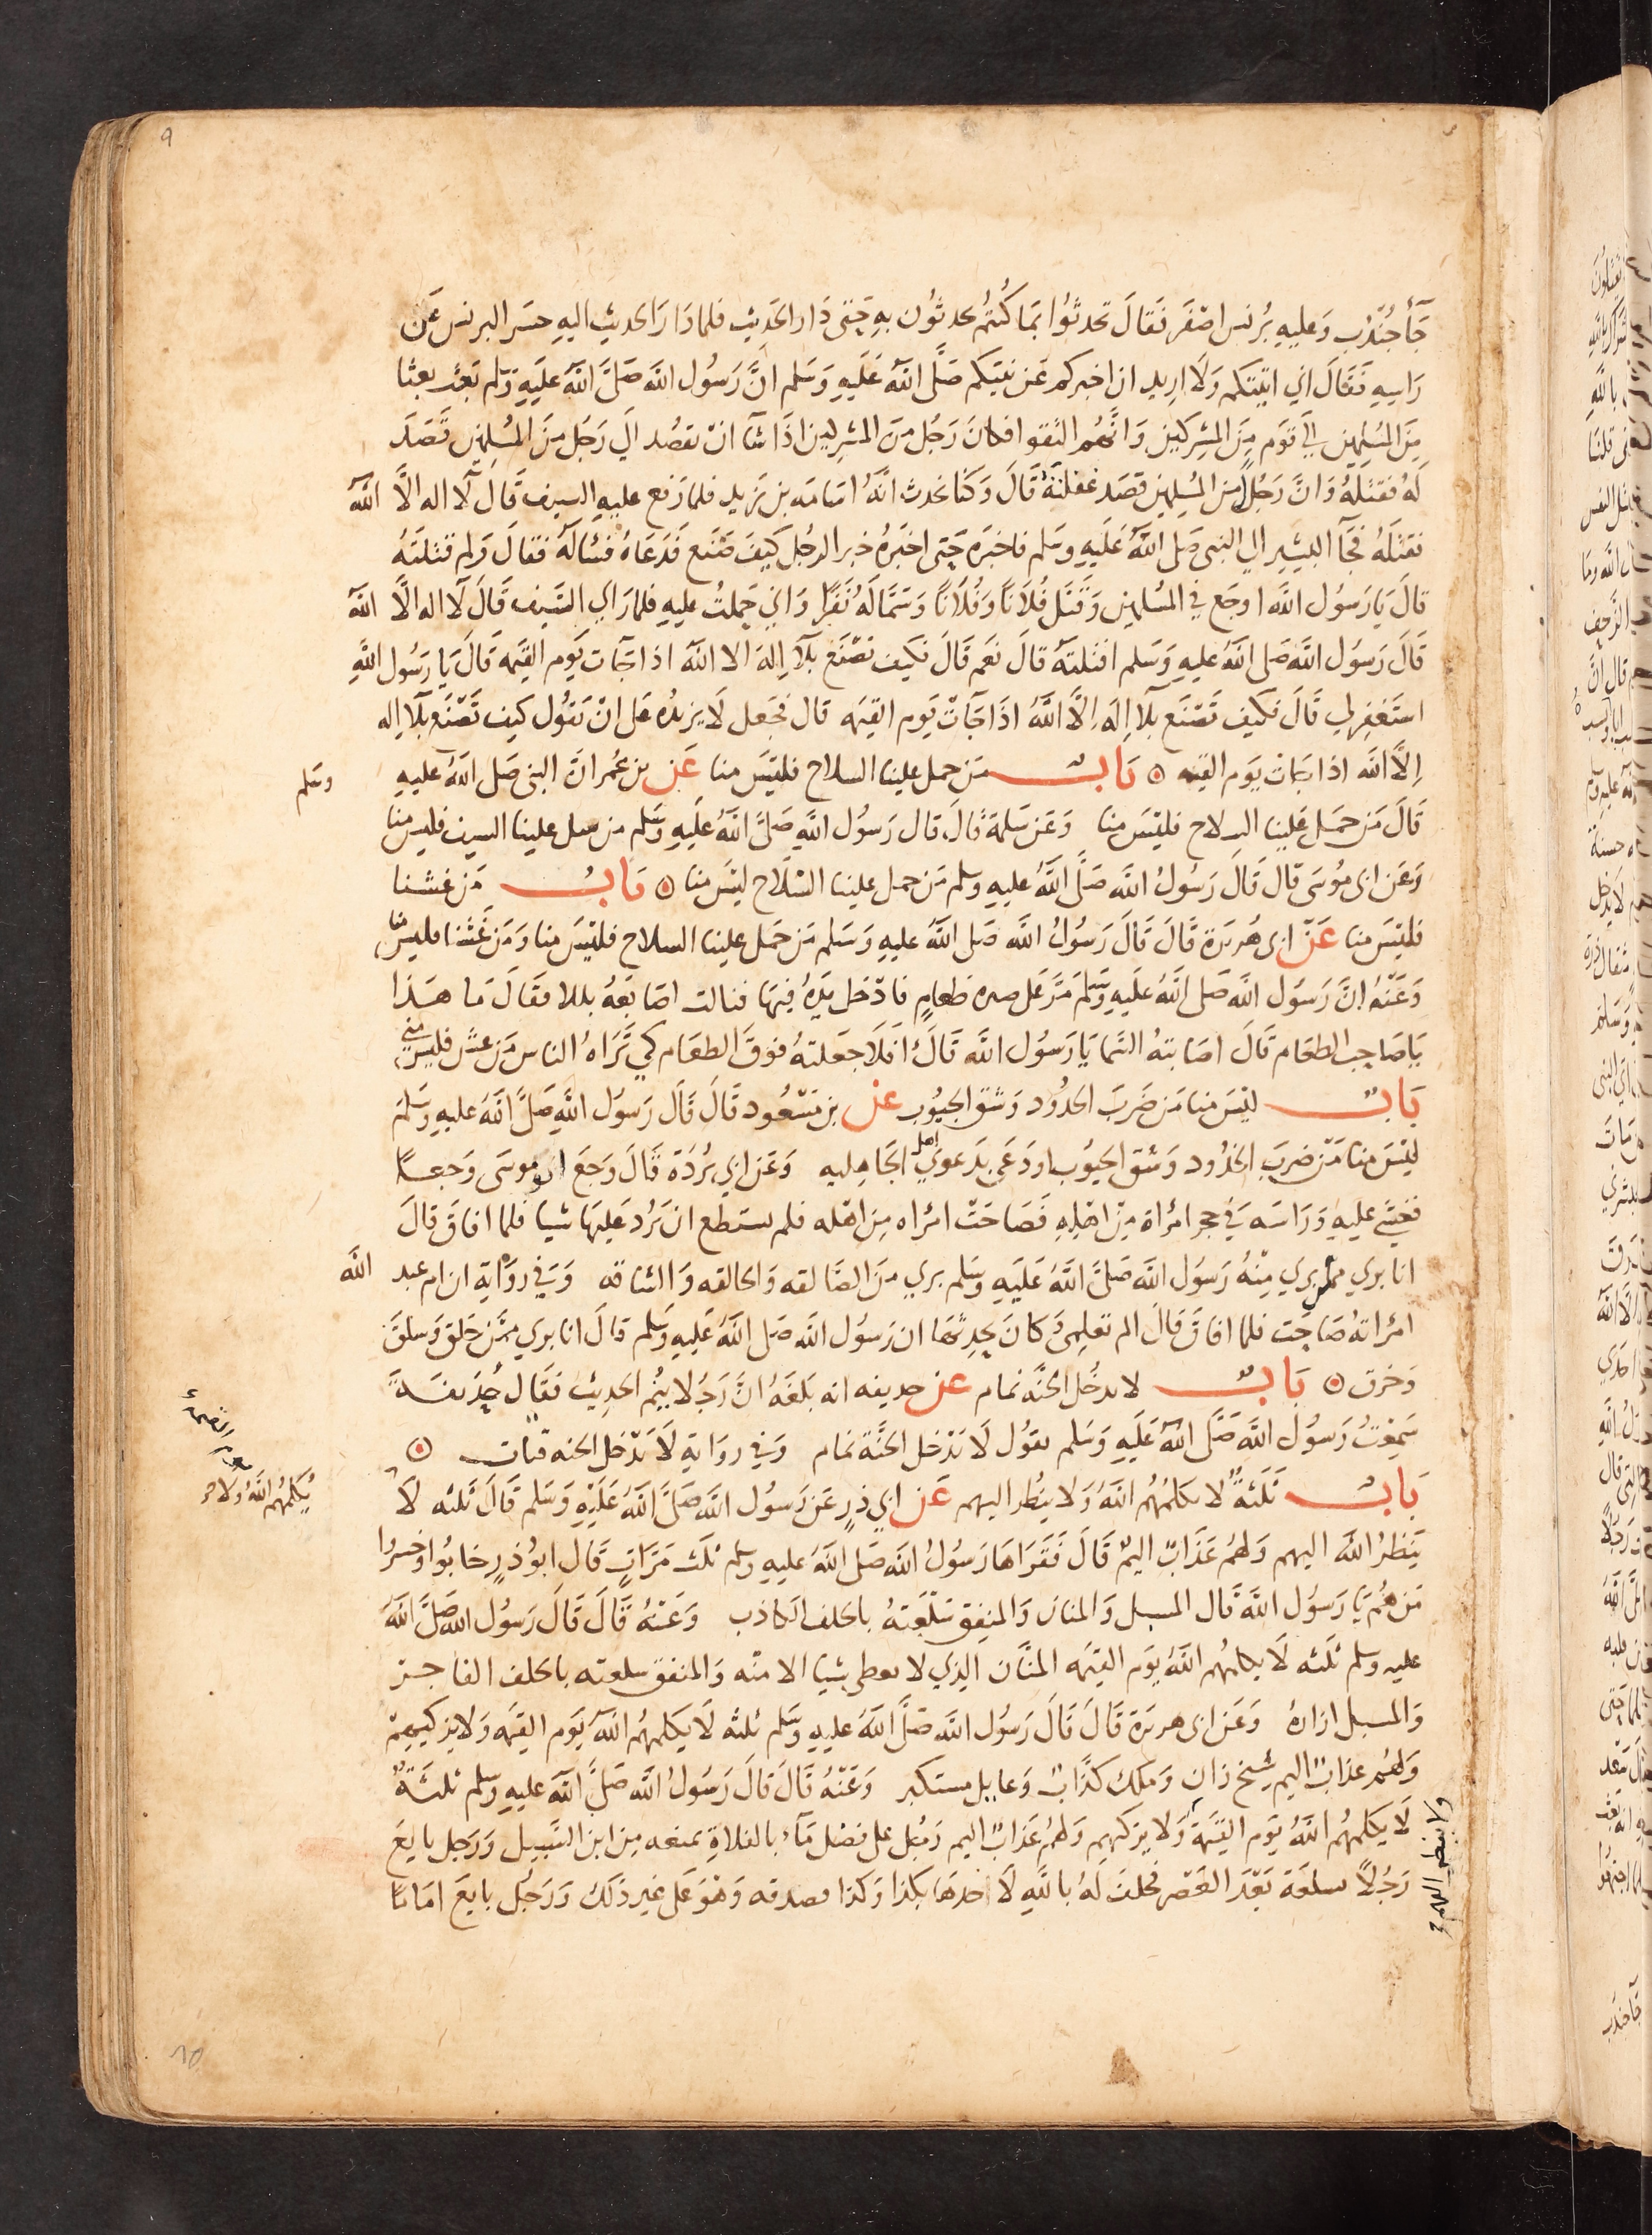 جَآ جُنْدُب وَعليهِ بُرنس اصْفَر فَقَالَ تحدثوُا بمَا كُنتُم تحدثوُن بهِ حَتى دَار الحَديث فلما دَارَ الحديث اليهِ حسَر البرنس عَن
رَاسِهِ فَقَالَ اني اتيتكم وَلَا اريد ان اخبركم عَن نبيكم صَلَّى اللهُ عَلَيهِ وَسَلم انَّ رَسُول الله صَلَّى اللهُ عَليهِ وَسَلم بَعث بعثا
مِنَ المُسْلمين الي قَوم مِنَ المشركين وَانَّهُم التقوا فكانَ رَجُل مِنَ المشركين اذَا شَآ انْ يقصُد الَي رَجُل مِنَ المُسْلمين قَصَدَ
لَهُ فقتلهُ وَانَّ رَجُلاً مِنَ المُسلمين قصَد غفلتَهُ قَالَ وَكنا نحدث انَّهُ اسَامَه بن زيد فلما رَفع عليهِ السيف قَالَ لآ اله الَّا اللهُ
فقتلَهُ فجآ البشير الي النبي صَلى اللهُ عَلَيهِ وسَلم فاخبَره حَتى اخبَرهُ خبر الرجُل كيفَ صَنَع فَدَعَاهُ فسَالَهُ فقالَ وَلم قتلتَهُ
قالَ يَا رَسُول الله اوجَع في المُسلمين وَقَتَل فُلَانًا وَفُلَانًا وَسَمَّا لَهُ نَفَرًا وَاني حَملتُ عليهِ فلما رَاي السَّيف قَالَ لَا اله الَّا اللهُ
قَالَ رَسُول الله صَلى اللهُ عليهِ وَسَلم اقتلتهُ قالَ نعَم قَالَ فكيف تصْنَع بلَآ اِلهَ الا اللهُ اذا جَآت يَوم القيمَه قَالَ يَا رَسُول اللهِ
استَغفر لي قَالَ فكيف تَصْنَع بلَآ اِلهَ اِلَّا اللهُ اذَا جَآتْ يَوم القيمَه قال فجَعل لَا يزيدُه عَلى انْ يَقوُل كيف تَصْنَع بلَا اِله
اِلَّا الله اذا جَآت يَوم القيمه ۞ بَابُ مَن حمل علينا السلاح فليْسَ منا عَن بن عُمر انَّ النبي صَلى اللهُ عليهِ وسَلم
قَالَ مَن حَمَل عَلينا السِلاح فليْسَ منا وَعَن سَلمة قَالَ قال رَسوُل الله صَلَّى اللهُ عَليهِ وَسَلم من سل علينا السيف فليس منا
وَعَن ابي مُوسَى قال قَالَ رَسُولُ الله صَلَّى اللهُ عليهِ وسلم مَن حمل علينا السِّلَاح ليْسَ منا ۞ بَابُ مَن غشنا
فليْسَ منا عَنْ ابي هُريرَة قَالَ قَالَ رَسُولُ الله صَلى اللهُ عليهِ وَسَلم مَن حَمل علينا السلاح فليْسَ منا وَمَن غَشنا فليسَ منا
وَعَنْهُ انَّ رَسُول الله صَلى اللهُ عَلَيهِ وَسَلَم مَرَّ عَلى صبره طعَامٍ فادْخل يَدهُ فيهَا فنالت اصَابعَهُ بللا فقَالَ مَا هَذا
يَا صَاحبَ الطعَام قَالَ اصَابتهُ السَّما يَا رَسُول الله قَالَ افَلَا جَعلتهُ فوقَ الطعَام كي تَرَاهُ الناس مَن غش فليسَ مني
بَابُ ليْسَ منا مَن ضَربَ الخدُود وَشقَّ الجيُوب عن بن مَسْعُود قَالَ قَالَ رَسوُل اللهِ صَلَّى اللهُ عليهِ وَسَلم
ليْسَ منا مَنْ ضربَ الخدُود وَشق الجيُوب اودَعَى بدَعوَي اهل الجَاهِليه وَعَن ابي بُردَة قَالَ وَجعَ ابو موسَى وَجعًا
فغشي عليهِ وَرَاسَه في حجر امرُاة مِنْ اهْلِهِ فَصَاحَتْ امرُاه مِن اهْله فلم يستَطع ان يَرُد عَليهَا شيا فلما افاقَ قالَ
انا بري مما بري مِنْهُ رَسُول الله صَلىَّ اللهُ عَلَيهِ وسَلم بري مِنَ الصَالقه وَالحالقه وَالشاقه وَفي رِوَايَة ان ام عبد الله
امرُاتهُ صَاحَت فلما افاقَ قالَ الم تعلمي وَكانَ يحدثهَا ان رَسُول الله صَلى اللهُ عَليهِ وسَلم قالَ انا بري ممَّن حَلق وَسلقَ
وَخرق ۞ بَابُ لا يدخُل الجنَّه نمام عن حذيفه انه بَلغَهُ انَّ رَجُلا ينُم الحديث فَقَال حُذيفَةَ
سَمعْتُ رَسُولُ الله صَلَّى اللهُ عَلَيهِ وَسَلم يقوُل لَا يَدْخل الجنَّة نمام وَفي روَايةٍ لَا يَدْخل الجنه قتات ۞
بَابُ ثَلثَةٌ لا يكلمُهُم اللهُ وَلا ينظر اليهم عَن ابي ذرٍ عَن رَسوُل الله صَلىَّ اللهُ عَليْهِ وَسَلم قَالَ ثلثه لَا
يُكلمُهُم اللهُ وَلا
يَنظرُ الله اليهم وَلَهُم عَذَابٌ اليمٌ قَالَ فَقَرَاهَا رَسُولُ الله صَلى اللهُ عليهِ وسلم ثلَث مَرَاتٍ قَال ابوُ ذرٍ خابُوا وَخسِرُوا
مَن هُم يَا رَسُول الله قَال المسبل وَالمنان وَالمنفِق سَلعَتهُ بالحلف الكاذب وَعَنْهُ قَالَ قَالَ رَسُول الله صَلىَّ اللهُ
عليه وسلم ثلَثه لَا يكلمهُم اللهُ يَوم القيمَه المنَّان الذِي لا يعطي شيا الا منَّه وَالمنفق سلعته بالحلف الفاجر
وَالمسبل ازارهُ وَعَن ابي هريرَة قَالَ قَالَ رَسُول الله صَلَّى اللهُ عليهِ وسَلم ثلثه لَا يكلمهُم اللهُ يَوم القيمَه وَلا يزكيهِمْ
وَلَهُم عَذابٌ اليم شيخ زانٍ وَملك كَذَّابٌ وَعايل مستكبر وَعَنْهُ قَالَ قالَ رَسوُلُ الله صَلىَّ اللهُ عليهِ وسلم ثلثَةٌ
لَا يكلمهُم اللهُ يَوم القيَمَة وَلا يزكيهم وَلهُم عَذَابٌ اليم رَجُل عَلى فضل مَآءٍ بالفلاةِ يمنعه مِن ابن السَّبيل وَرَجل بايَعَ
ولا ينظر اليهم
رَجُلاً سلعَة بَعْدَ العَصْر فحلفَ لهُ باللهِ لَاخذهَا بكذا وَكذا فصدقه وَهْوَ عَلى غير ذلك وَرَجُل بايَعَ امَامًا